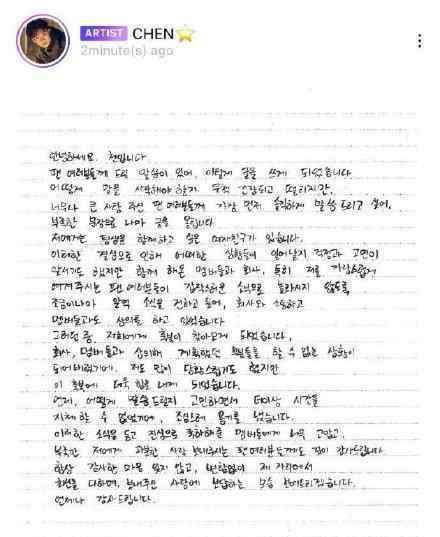 ARTIST CHEN
2minute(s) ago
안녕하세요. 첸입니다
팬 여러분들께 드릴 말씀이 있어, 이렇게 글을 쓰게 되었습니다.
어떻게 말을 시작해야 할지 무척 긴장되고 떨리지만,
너무나 큰 사랑 주신 팬 여러분들께 가장 먼저 솔직하게 말씀 드리고 싶어,
부족한 문장으로 나마 글을 올립니다
저에게는 평생을 함께하고 싶은 여자친구가 있습니다.
이러한 결심으로 인해 어떠한 상황들이 일어날지 걱정과 고민이
앞서기도 했지만 함께 해온 멤버들과 회사, 특히 저를 자랑스럽게
여겨주시는 팬 여러분들이 갑작스러운 소식으로 놀라시지 않도록
조금이나마 일찍 소식을 전하고 싶어, 회사와 소통하고
멤버들과도 상의를 하고 있었습니다
그러던 중, 저희에게 축복이 찾아오게 되었습니다.
회사, 멤버들과 상의해 계획했던 부분들을 할 수 없는 상황이
되어버렸기에, 저도 많이 당황스럽기도 했지만
이 축복에 더욱 힘을 내게 되었습니다.
언제, 어떻게 말씀드릴지 고민하면서 더이상 시간을
지체할 수 없었기에, 조심스레 용기를 냈습니다.
이러한 소식을 듣고 진심으로 축하해준 멤버들에게 너무 고맙고,
부족한 저에게 과분한 사랑 보내주시는 팬 여러분들께도 깊이 감사드립니다
항상 감사한 마음 잊지 않고, 변함없이 제 자리에서
최선을 다하며, 보내주신 사랑에 보답하는 모습 보여드리겠습니다.
언제나 감사드립니다.